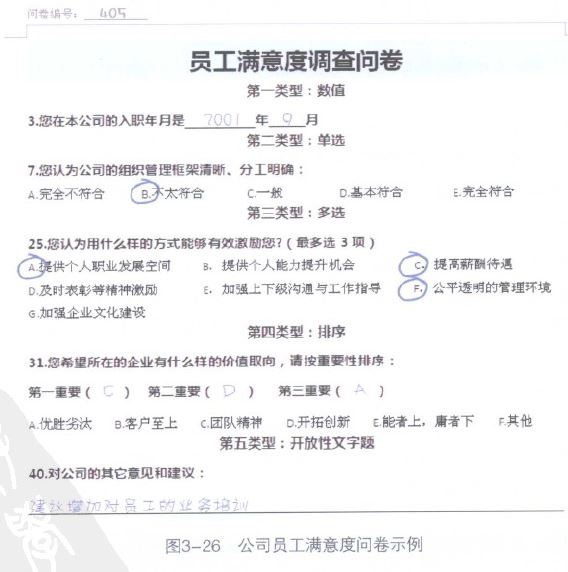 问卷编号： 405
员工满意度调查问卷
第一类型：数值
3.您在本公司的入职年月是 2001 年 9 月
第二类型：单选
7.您认为公司的组织管理框架清晰、分工明确：
A.完全不符合 B.不太符合 C.一般 D.基本符合 E.完全符合
第三类型：多选
25.您认为用什么样的方式能够有效激励您?（最多选 3 项）
A.提供个人职业发展空间 B. 提供个人能力提升机会 C. 提高薪酬待遇
D.及时表彰等精神激励 E. 加强上下级沟通与工作指导 F. 公平透明的管理环境
G.加强企业文化建设
第四类型：排序
31.您希望所在的企业有什么样的价值取向，请按重要性排序：
第一重要（ C ） 第二重要（ D ） 第三重要（ A ）
A.优胜劣汰 B.客户至上 C.团队精神 D.开拓创新 E.能者上，庸者下 F.其他
第五类型：开放性文字题
40.对公司的其它意见和建议：
建议增加对员工的业务培训
图3-26 公司员工满意度问卷示例